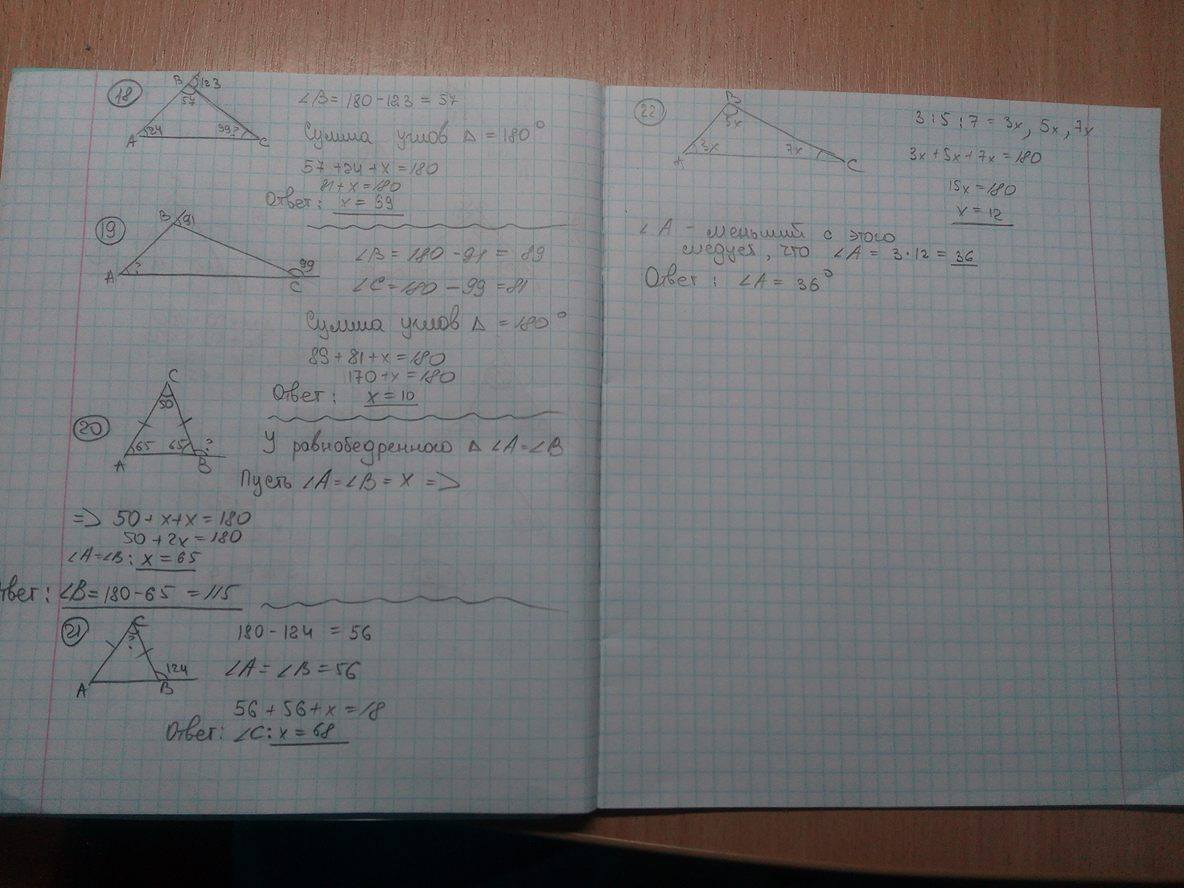 18
B
123
57
A
24
99?
C
∠B = 180 - 123 = 57
Сумма углов Δ = 180°
57 + 24 + x = 180
81 + x = 180
Ответ: x = 99
19
B
91
A
?
99
C
∠B = 180 - 91 = 89
∠C = 180 - 99 = 81
Сумма углов Δ = 180°
89 + 81 + x = 180
170 + x = 180
Ответ: x = 10
20
C
50
65
65
?
A
B
У равнобедренного Δ ∠A = ∠B
Пусть ∠A = ∠B = x =>
=> 50 + x + x = 180
50 + 2x = 180
∠A = ∠B: x = 65
Ответ: ∠B = 180 - 65 = 115
21
C
?
124
A
B
180 - 124 = 56
∠A = ∠B = 56
56 + 56 + x = 18
Ответ: ∠C: x = 68
22
B
5x
A
3x
7x
C
3 : 5 : 7 = 3x, 5x, 7x
3x + 5x + 7x = 180
15x = 180
x = 12
∠A - меньший с этого
следует, что ∠A = 3 · 12 = 36
Ответ: ∠A = 36°